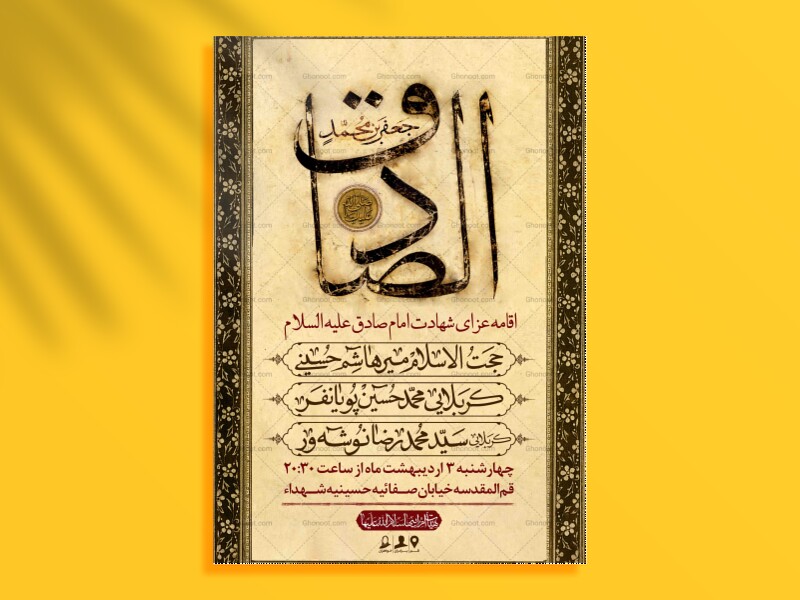 الصادق
جعفر بن محمد
اقامه عزای شهادت امام صادق علیه السلام
حجت الاسلام میرهاشم حسینی
کربلایی محمدحسین پویانفر
کربلایی سیدمحمدرضا نوشه‌ور
چهارشنبه ۳ اردیبهشت ماه از ساعت ۲۰:۳۰
قم المقدسه خیابان صفائیه حسینیه شهداء
Ghonoot.com